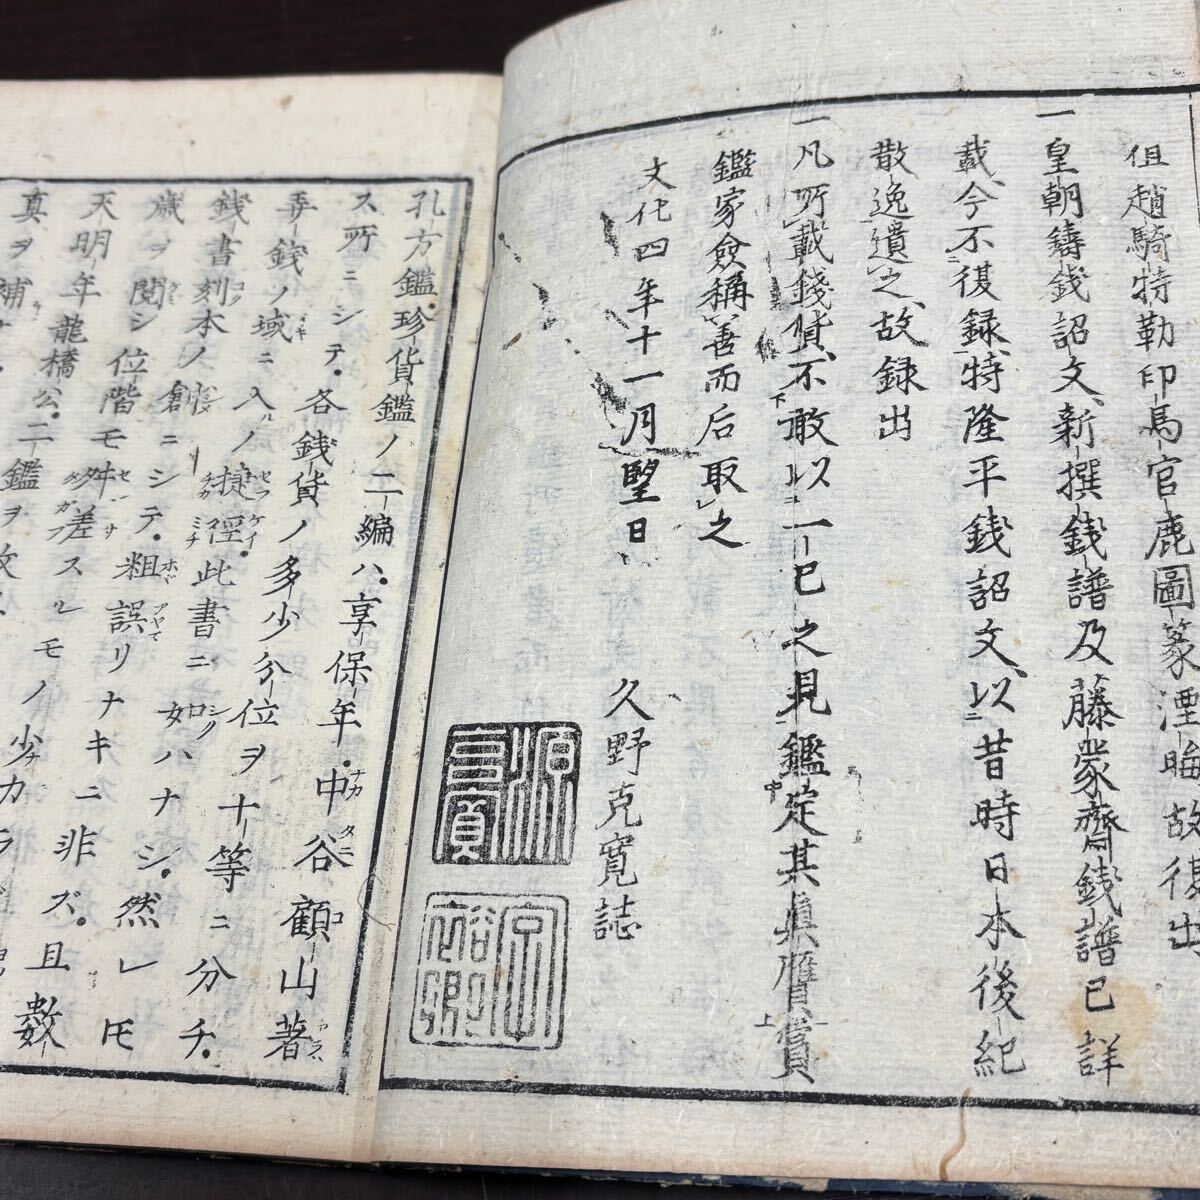 但趙騎特勒印馬官鹿圖篆湮晦故復出
一皇朝鑄銭詔文、新撰銭譜及藤蒙齋銭譜已詳
載、今不復録、特隆平銭詔文、以昔時日本後紀
散逸遺之、故録出
一凡所載錢貨、不敢以一已之見鑑定其眞贋賞
鑑家僉稱善而后取之
文化四年十一月望日　久野克寛誌
孔方鑑珍貨鑑ノ二編ハ、享保年中谷顧山著
ス所ニシテ各銭貨ノ多少分位ヲ十等ニ分チ
弄銭ノ域ニ入ノ捷徑此書ニ如ハナシ然レモ
銭書刻本ノ創ニシテ粗誤リナキニ非ズ且數
歳ヲ閲シ位階モ舛差スルモノ少カラ
天明年龍橋公二鑑ヲ
真ヲ補